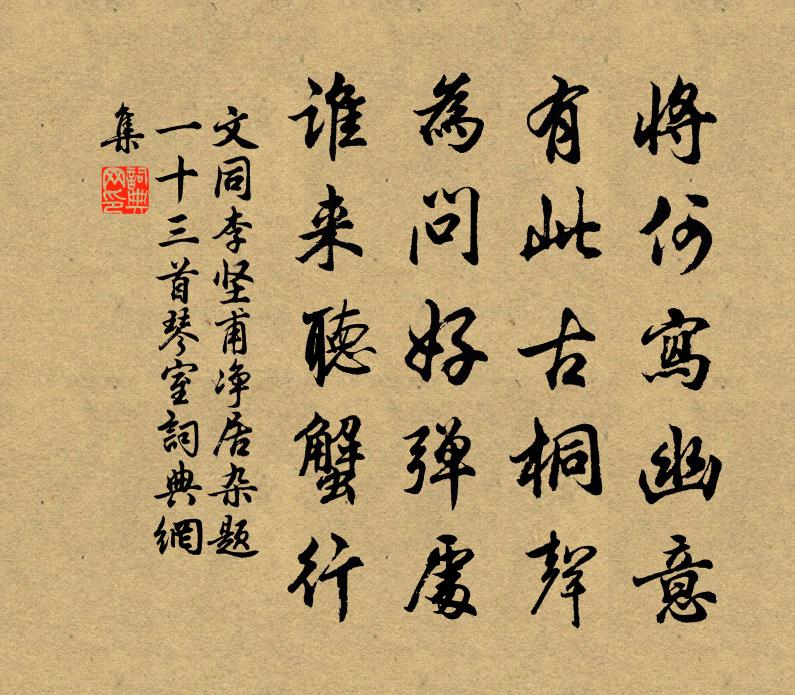 将何寫幽意
有此古桐聲
為問好弹處
谁来聽蟹行
文同李坚甫净居杂题
一十三首琴室詞典網
集
詞典
网印